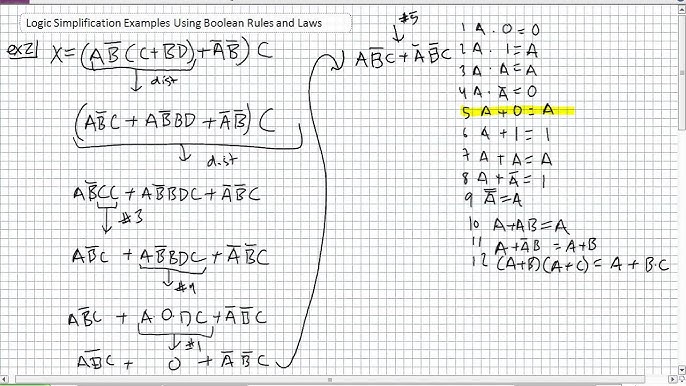 Logic Simplification Examples Using Boolean Rules and Laws
ex2) X = (AB̅(C+BD) + A̅B̅)C
dist
(AB̅C + AB̅BD + A̅B̅)C
dist
AB̅CC + AB̅BDC + A̅B̅C
#3
AB̅C + AB̅BDC + A̅B̅C
#4
AB̅C + A·0·DC + A̅B̅C
#1
AB̅C + 0 + A̅B̅C
#5
AB̅C + A̅B̅C
1 A · 0 = 0
2 A · 1 = A
3 A · A = A
4 A · A̅ = 0
5 A + 0 = A
6 A + 1 = 1
7 A + A = A
8 A + A̅ = 1
9 A̿ = A
10 A + AB = A
11 A + A̅B = A + B
12 (A+B)(A+C) = A + B·C